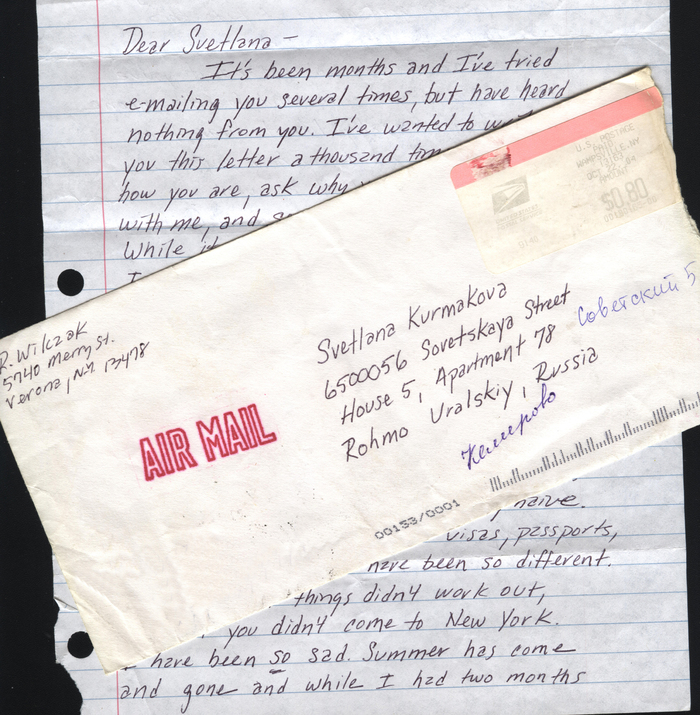 Dear Svetlana —
It's been months and I've tried
e-mailing you several times, but have heard
nothing from you. I've wanted to
you this letter a thousand
how you are, ask why
with me, and
While
I
U.S. POSTAGE
PAID
AMOUNT
$0.80
R. Wilczak
5740 Merry St.
Verona, N.Y. 13478
AIR MAIL
Svetlana Kurmakova
6500056 Sovetskaya Street
House 5, Apartment 78
Rohmo Uralskiy, Russia
Советский 5
Кемерово
00153/0001
naive.
visas, passports,
have been so different.
things didn't work out,
you didn't come to New York.
I have been so sad. Summer has come
and gone and while I had two months